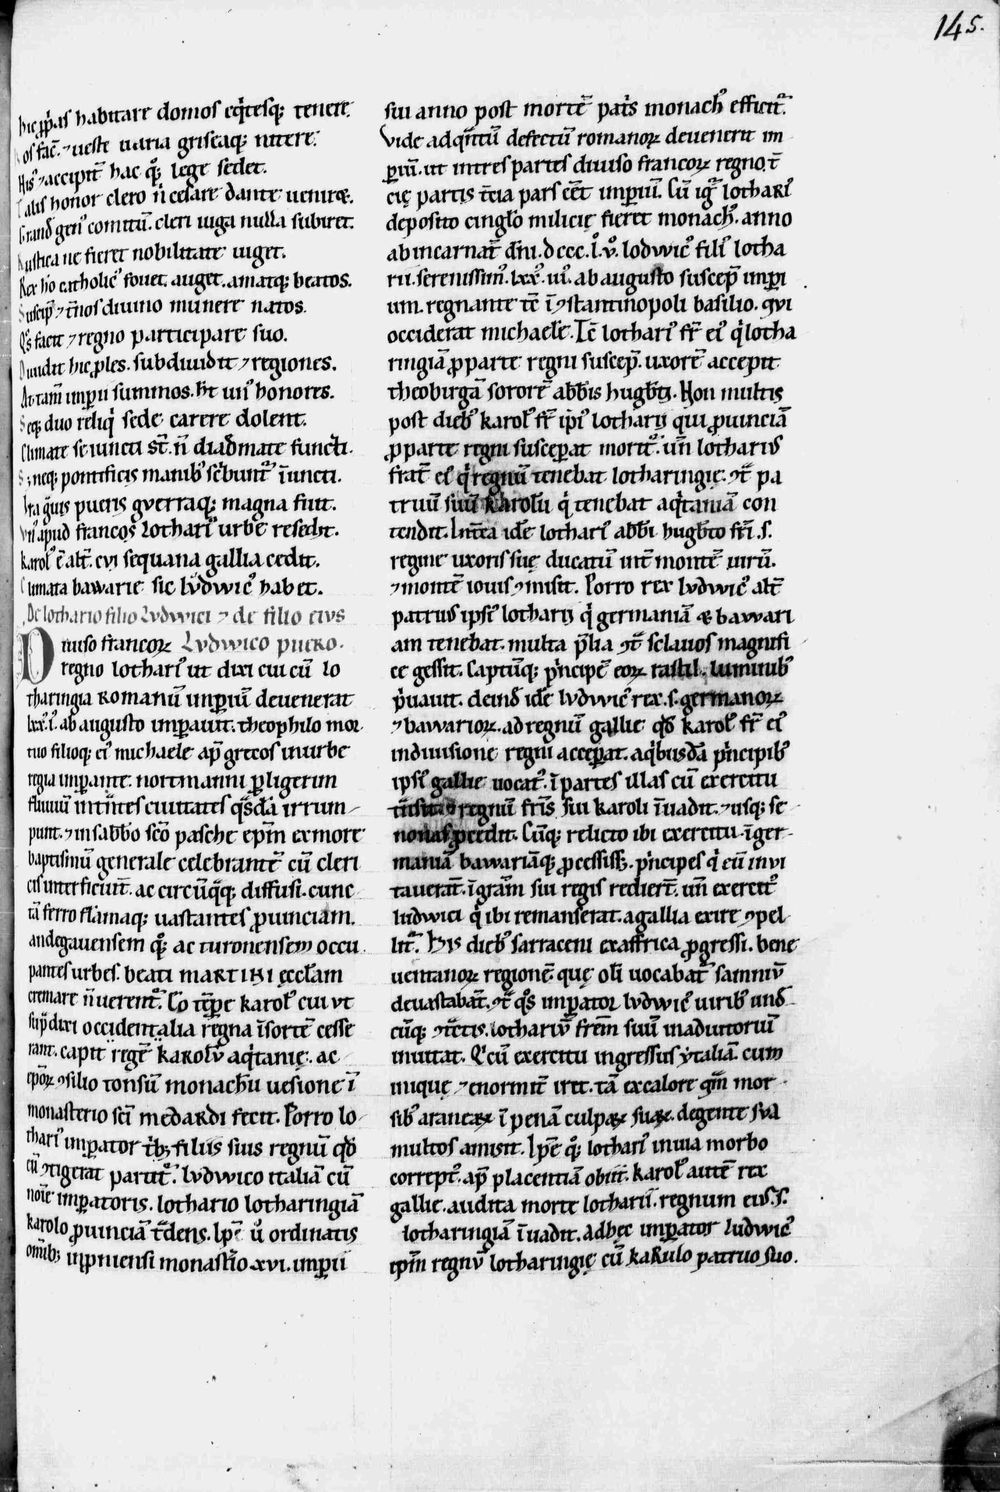 145.
hic ꝓp̄as habitare domos eq̄tesq; tenere.
os fac̄. ⁊ ueste uaria griseaq; nitere.
His ⁊ accipit̄ hac qꝫ lege sedet.
Talis honor clero n̄ cesare dante uenireꝫ.
Grand gen᾽ comitum̄. cleri iuga nulla subiret.
Rustica ne fieret nobilitate uiget.
Rex ho᾽ catholic᾽ fouet. auget. amatq; beatos.
Suscip̄ ⁊ t̄nos diuino munere natos.
Q᾽s facit ⁊ regno participare suo.
Diuidit hic ꝓles. subdiuidit ⁊ regiones.
At tam̄ imp̲ii summos. h̄t un᾽ honores.
Seq; duo reliq̄ sede carere dolent.
Climate se iuncti st̄. n̄ diadmate functi.
S; neq; pontificis manib᾽ sc̄bunt᾽ ı̄uncti.
Ira g̓uis pueris gverraq; magna fuit.
Vn᾽ apud francos lothari᾽ urbe resedit.
Karol᾽ ē alt̄. cvi sequana gallia cedit.
Climata bawarie sic lvdwic᾽ habet.
De lothario filio Lvdwici ⁊ de filio eivs
Lvdwico pvero.
Diuiso francoꝝ
regno lothari᾽ ut dixi cui cū lo
tharingia romanū imp̲iū devenerat
lxx᾽. ı᾽. ab augusto imp̲auit. theophilo mor
tuo filioq; ei᾽ michaele ap̄ grecos in urbe
regia imp̲ante. nortmanni p̲ ligerim
fluuiū intrātes ciuitates q̄sdā irrum
punt. ⁊ in sabb̄o sc̄o pasche ep̄m ex more
baptismū generale celebrantē cū cleri
cis interficiūt. ac circūq̄q; diffusi. cunc
ta ferro flāmaq; uastantes ꝓuinciam.
andegauensem qꝫ ac turonensem occu
pantes urbes. beati martini eccl̄am
cremare n̄ uerent᾽. Eo tēp̲e karol᾽ cui ut
sup̄ dixi occidentalia regna ī sortē cesse
rant. capit regē karolū aq̄tanię. ac
ep̄oꝝ ꝯsilio tonsū monachū uesione ī
monasterio sc̄i medardi fecit. Porro lo
thari᾽ imp̲ator t̓bꝫ filiis suis regnū qd̄
cū ꝯtigerat partit᾽. lvdwico italiā cū
noīe imp̲atoris. lothario lotharingiā
karolo ꝓuinciā t̄dens. Ip̄e u᾽ ordinatis
omībꝫ in prumiensi monast̄io xvi. imp̲ii
sui anno post mortē pat̓s monach᾽ efficit᾽.
Vide ad q̄ntū defectū romanoꝝ devenerit im
p̲iū. ut in tres partes diuiso francoꝝ regno. t̄
cię partis t̄cia pars ēet imp̲iū. Cū ig᾽ lothari᾽
deposito cinglo milicię fieret monach᾽. anno
ab incarnat̄ dn̄i. dccc. l᾽. v᾽. lodwic᾽ fili᾽ lotha
rii. serenissim᾽. lxx᾽. ii᾽. ab augusto suscep̄ imp̲i
um. regnante tc̄ ī ꝯstantinopoli basilio. qvi
occiderat michaelē. Itē lothari᾽ fr̄ ei᾽ q̓ lotha
ringiā ꝓ parte regni suscep̄. uxorē accepit
theobirgā sororē abb̄is hugb̄ti. Non multis
post dieb᾽ karol᾽ fr̄ ip̄i᾽ lotharij qui ꝓuinciā
ꝓ parte regni suscep̲at mortu᾽. un̄ lothari᾽
frat̄ ei᾽ q̓ regnū tenebat lotharingie. ꝯt̄ pa
truū suū karolū q̓ tenebat aq̄taniā con
tendit. Int̄ea idē lothari᾽ abb̄i hugb̄to fr̄i. s.
regine uxoris suę ducatū int̄ montē uirū.
⁊ montē iouis ꝯmisit. Porro rex lvdwic᾽ alt̄
patruus ipsi᾽ lotharij q̓ germaniā ⁊ bawari
am tenebat. multa p̄lia ꝯt̄ sclauos magnifi
ce gessit. Captūq; p̓ncipē eoꝝ rastil. luminib᾽
p̓uauit. deind̄ idē lvdwic᾽ rex. s. germanoꝝ
⁊ bawarioꝝ. ad regnū gallie. qd̄ karol᾽ fr̄ ei᾽
in diuisione regni accep̲at. aq̓busdā p̓ncipib᾽
ipsi᾽ gallie uocat᾽. ī partes illas cū exercitu
t̄nsit. ⁊ regnū fr̄is sui karoli ı̄uadit. ⁊ usq; se
nonas p̲cedit. Cūq; relicto ibi exercitu. ī ger
maniā bawariāq; ꝓcessiss;. p̓ncipes q̓ eū invi
tauerat̄. ī gr̄am sui regis redier̄t. un̄ exercit᾽
ludwici q̓ ibi remanserat. a gallia exire ꝯpel
lit᾽. His dieb᾽ sarraceni ex affrica ꝓgressi. bene
uentanoꝝ regionē quę oli᾽ uocabat᾽ samniū
deuastabāt. ꝯt̄ q᾽s imp̲ator lvdwic᾽ uirib᾽ und
cūq; ꝯt̄ctis. lothariū fr̄em suū in adiutoriū
inuitat. Q̓ cū exercitu ingressus ytaliā. cum
inique ⁊ enormit̄ iret. tā ex calore qm̄ mor
sib᾽ aranearꝝ ī penā culparꝝ suarꝝ. degente sva
multos amisit. Ip̄e qꝫ lothari᾽ in uia morbo
corrept᾽. ap̄ placentiā obiit. Karol᾽ autē rex
gallie. audita morte lotharii. regnum eius. s.
lotharingiā ı̄uadit. adhęc imp̲ator ludwic᾽
ip̄m regnū lotharingię cū karulo patruo suo.